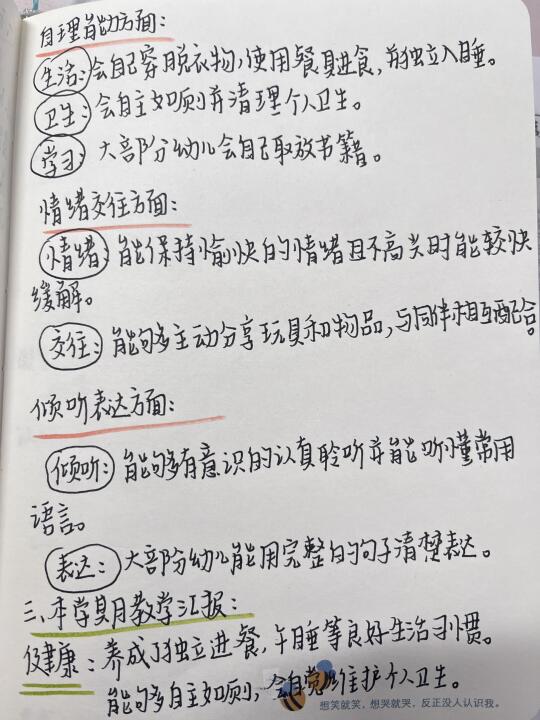 自理能力方面:
生活:会自己穿脱衣物,使用餐具进食,并独立入睡。
卫生:会自主如厕并清理个人卫生。
学习:大部分幼儿会自己取放书籍。
情绪交往方面:
情绪:能保持愉快的情绪且不高兴时能较快
缓解。
交往:能够主动分享玩具和物品,与同伴相互配合。
倾听表达方面:
倾听:能够有意识的认真聆听并能听懂常用
语言。
表达:大部分幼儿能用完整的句子清楚表达。
三、本学期教学汇报:
健康:养成了独立进餐,午睡等良好生活习惯。
能够自主如厕,会自觉维护个人卫生。
想笑就笑,想哭就哭,反正没人认识我。